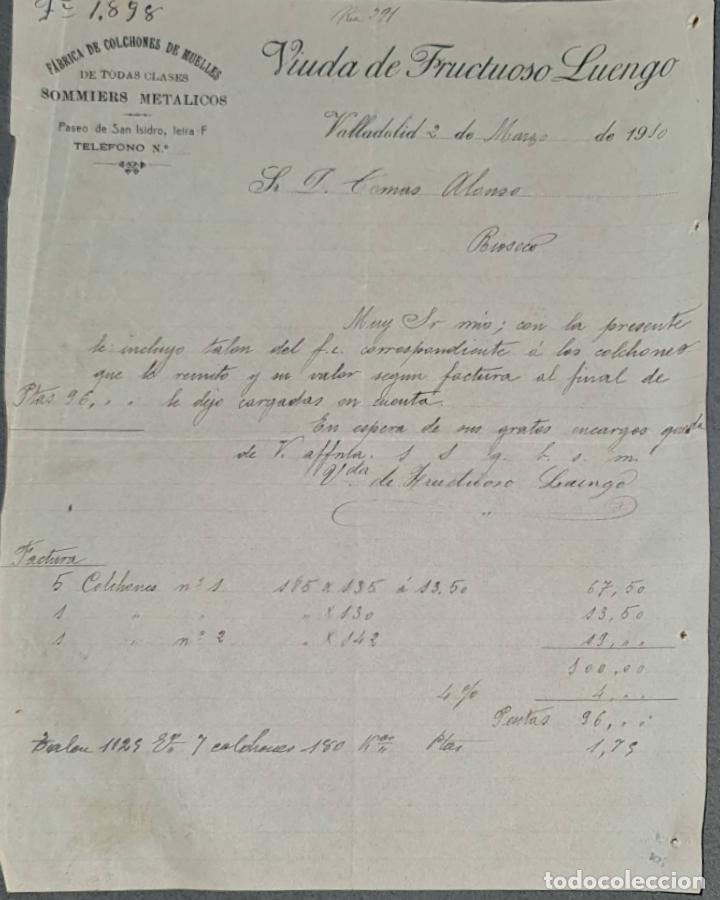 Fª 1.898
Rio 391
FÁBRICA DE COLCHONES DE MUELLES
DE TODAS CLASES
SOMMIERS METALICOS
Paseo de San Isidro, letra F
TELÉFONO N.º
Viuda de Fructuoso Luengo
Valladolid 2 de Marzo de 1910
Sr D. Tomas Alonso
Rioseco
Muy Sr mio; con la presente
le incluyo talon del f.c. correspondiente á los colchones
que le remito y su valor segun factura al final de
Ptas 96, " " le dejo cargadas en cuenta.
En espera de sus gratos encargos queda
de V. affma. s s q. b. s. m.
Vda de Fructuoso Luengo
Factura
5 Colchones nº 1 185 x 135 á 13.50 67,50
1 " " " x 130 13,50
1 " nº 2 " x 142 19, " "
100,00
4 % 4, " "
Pesetas 96, " "
Talon 1129 7 colchones 180 Kos Ptas 1,79
todocoleccion